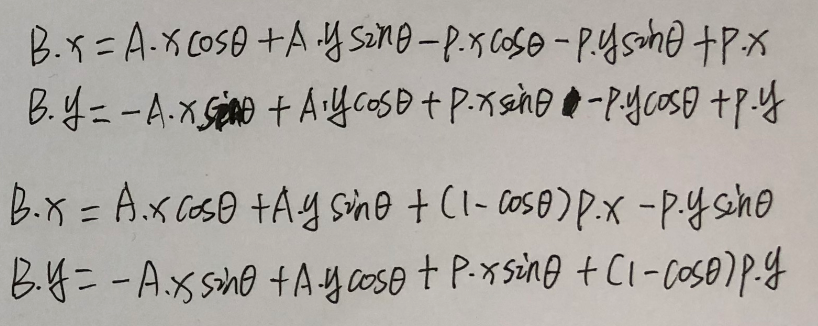 B.x = A.x cosθ + A.y sinθ - P.x cosθ - P.y sinθ + P.x
B.y = -A.x sinθ + A.y cosθ + P.x sinθ - P.y cosθ + P.y
B.x = A.x cosθ + A.y sinθ + (1 - cosθ) P.x - P.y sinθ
B.y = -A.x sinθ + A.y cosθ + P.x sinθ + (1 - cosθ) P.y